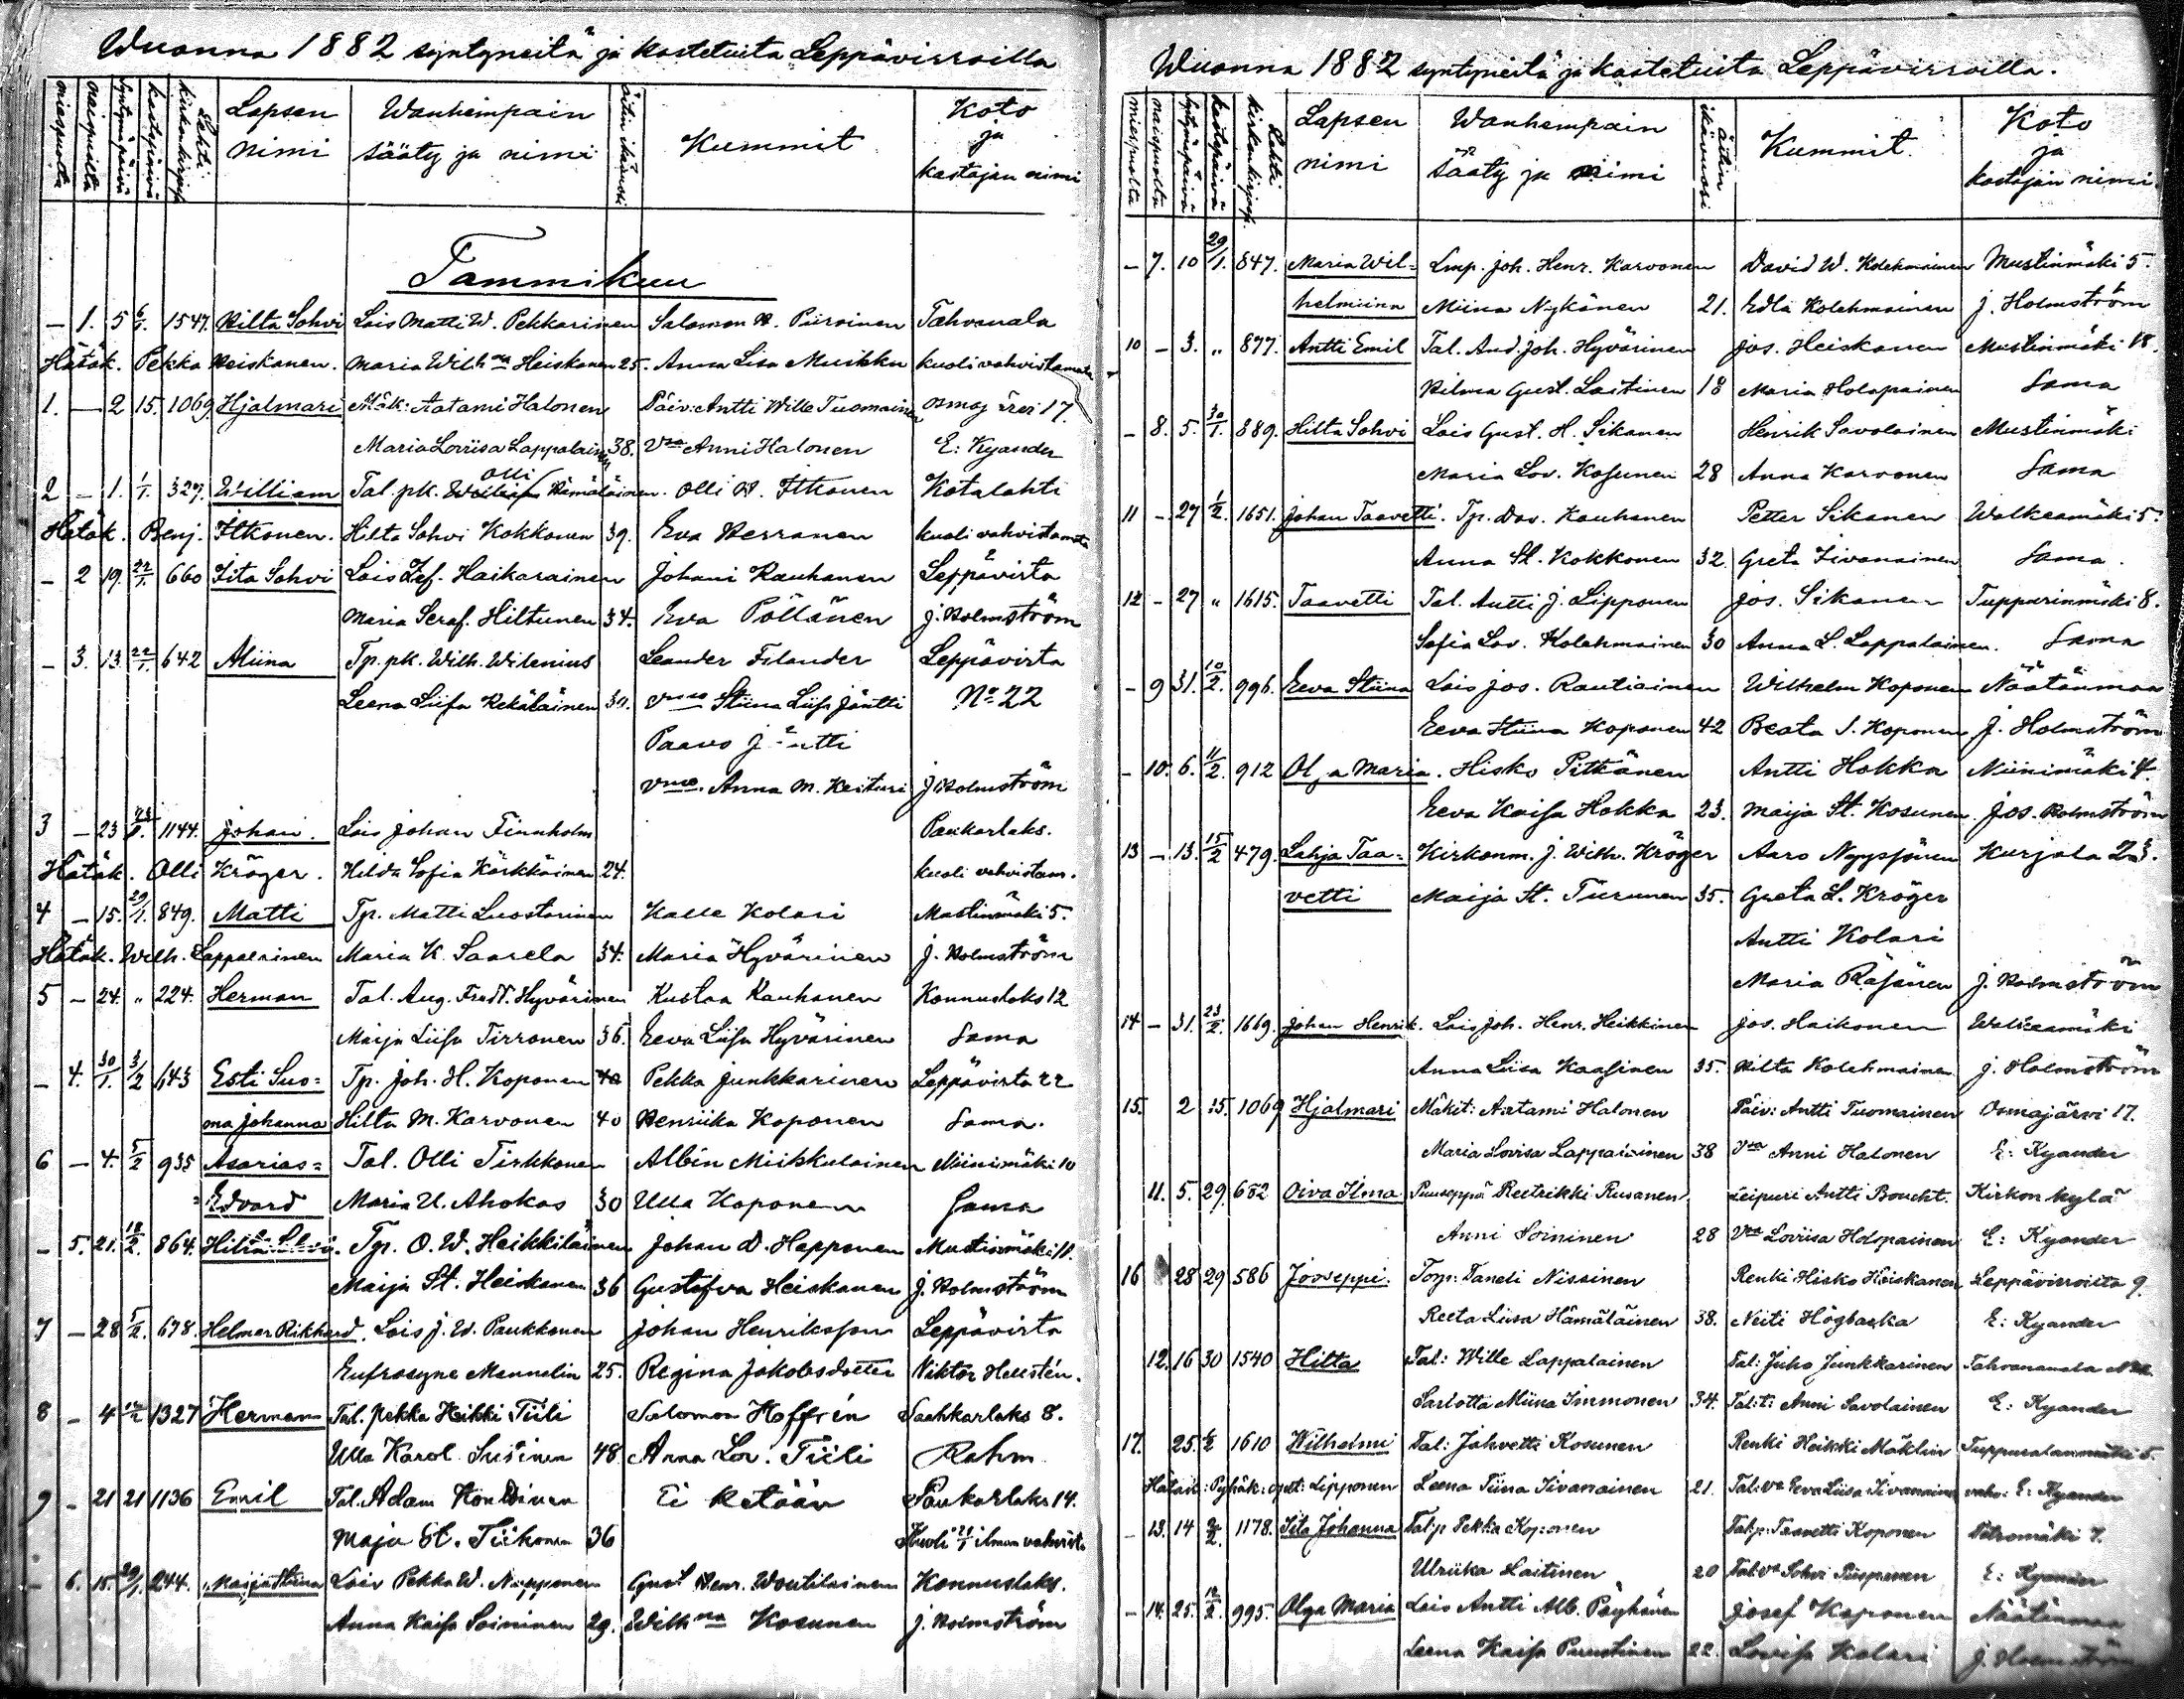 Wuonna 1882 syntyneitä ja kastetuita Leppävirroilla
miespuolta naispuolta syntymäpäivä kastepäivä Lehti kirkonkirjass Lapsen nimi Wanhempain sääty ja nimi äitin ikävuosi Kummit Koto ja kastajan nimi
Tammikuu
— 1. 5 6/1. 1547. Hilta Sohvi Lois Matti W. Pekkarinen Salomon H. Piiroinen Tahvanala
Hätäk. Pekka Heiskanen. Maria Wilh:na Heiskanen 25. Anna Lisa Muikku kuoli vahvistamata
1. — 2 15. 1069. Hjalmari Mäk: Aatami Halonen Päiv: Antti Wille Tuomainen Osmajärvi 17.
Maria Loviisa Lappalainen 38. Vmo Anni Halonen E: Kyander
2 — 1. 1/1. 327. William Tal. pk. Olli Hämäläinen. Olli W. Itkonen Kotalahti
Hätäk. Benj. Itkonen. Hilta Sohvi Kokkonen 39. Eva Herranen kuoli vahvistamata
— 2 19. 22/1. 660 Iita Sohvi Lois Zef. Haikarainen Johani Kauhanen Leppävirta
Maria Seraf. Hiltunen 34. Eva Pöllänen J. Holmström
— 3. 13. 22/1. 642 Miina Tp. pk. Wilh. Wilenius Leander Filander Leppävirta
Leena Liisa Rekäläinen 30. Vmo Stiina Liisa Jäntti No 22
Paavo Jäntti
Vmo. Anna M. Keituri J. Holmström
3 — 23 23/1. 1144. Johan. Lois Johan Finnholm Paukarlaks.
Hätäk. Olli Kröger. Hilda Sofia Kärkkäinen 24. kuoli vahvistam.
4 — 15. 29/1. 849. Matti Tp. Matti Luostarinen Kalle Kolari Mustinmäki 5.
Hätäk. Wilh. Lappalainen Maria K. Saarela 34. Maria Hyvärinen J. Holmström
5 — 24. „ 224. Herman Tal. Aug. Fredr. Hyvärinen Kustaa Kauhanen Konnuslaks 12
Maija Liisa Tirronen 36. Eeva Liisa Hyvärinen Sama
— 4. 30/1. 3/2 643 Esti Suo= Tp. Joh. H. Koponen 40 Pekka Junkkarinen Leppävirta 22
ma Johanna Hilta M. Karvonen 40 Henriika Koponen Sama.
6 — 4. 5/2 935 Asarias= Tal. Olli Tirkkonen Albin Miikkulainen Niinimäki 10
=Edvard Maria U. Ahokas 30 Ulla Koponen Sama
— 5. 21. 12/2. 864. Hilta Tp. O. W. Heikkiläinen Johan D. Happonen Mustinmäki 11.
Maija St. Heiskanen 36 Gustafva Heiskanen J. Holmström
7 — 28 5/2. 678. Helmer Rikhard. Lois J. W. Paukkonen Johan Henriksson Leppävirta
Eufrosyne Mannelin 25. Regina Jakobsdotter Viktor Hellstén.
8 — 4 12/2 1327 Herman Tal. Pekka Heikki Tiili Salomon Hoffrén Saahkarlaks 8.
Ulla Karol. Susinen 48. Anna Lov. Tiili Rahm
9 — 21 21 1136 Emil Tal. Adam Ei ketään Paukarlaks 14.
Maja St. Tiikonen 36 Kuoli 21/1 ilman vahvist.
— 6. 15. 29/1. 244. Maija Stiina Lois Pekka W. Nupponen Gust. Henr. Woutilainen Konnuslaks.
Anna Kaisa Soininen 29. Wilh:na Kosunen J. Holmström
Wuonna 1882 syntyneitä ja kastetuita Leppävirroilla.
miespuolta naispuolta syntymäpäivä kastepäivä Lehti kirkonkirjass. Lapsen nimi Wanhempain Sääty ja nimi äitin ikävuosi Kummit. Koto ja kastajan nimi.
— 7. 10 29/1. 847. Maria Wil= Lmp. Joh. Henr. Karvonen David W. Kolehmainen Mustinmäki 5.
helmiina Miina Nykänen 21. Edla Kolehmainen J. Holmström
10 — 3. „ 877. Antti Emil Tal. And. Joh. Hyvärinen Jos. Heiskanen Mustinmäki 18.
Hilma Gust. Laitinen 18 Maria Holopainen Sama
— 8. 5. 30/1. 889. Hilta Sohvi Lois Gust. H. Sikanen Henrik Savolainen Mustinmäki
Maria Lov. Kosunen 28 Anna Karvonen Sama
11 — 27 1/2. 1651. Johan Taavetti. Tp. Dav. Kauhanen Petter Sikanen Walkeamäki 5.
Anna St. Kokkonen 32. Greta Iivanainen Sama.
12 — 27 „ 1615. Taavetti Tal. Antti J. Lipponen Jos. Sikanen Tuppurinmäki 8.
Sofia Lov. Kolehmainen 30 Anna L. Lappalainen. Sama
— 9 31. 10/2. 996. Eeva Stiina Lois Jos. Rautiainen Wilhelm Koponen Näätänmaa
Eeva Stiina Koponen 42 Beata S. Koponen J. Holmström
— 10. 6. 11/2. 912 Olja Maria. Hisko Pitkänen Antti Hokka Niinimäki 4.
Eeva Kaisa Hokka 23. Maija St. Kosunen. Jos. Holmström
13 — 13. 15/2 479. Lahja Taa= Kirkonm. J. Wilh. Kröger Aaro Nyyssönen Kurjala 23.
vetti Maija St. Tiirunen 35. Greta L. Kröger
Antti Kolari
Maria Räsänen J. Holmström
14 — 31. 23/2. 1669. Johan Henrik. Lois Joh. Henr. Heikkinen Jos. Haikonen Walkeamäki
Anna Liisa Kaasinen 35. Hilta Kolehmainen. J. Holmström
15. 2 15. 1069 Hjalmari Mäkit: Aatami Halonen Päiv: Antti Tuomainen Osmajärvi 17.
Maria Lovisa Lappalainen 38 Vmo Anni Halonen E: Kyander
11. 5. 29. 682 Oiva Ilma Puuseppä Reetrikki Rusanen. Leipuri Antti Boucht. Kirkon kylä
Anni Soininen 28 Vmo Loviisa Holopainen E: Kyander
16 28 29 586 Jooseppi. Torp: Taneli Nissinen Renki Hisko Heiskanen Leppävirroilta 9.
Reeta Liisa Hämäläinen 38. Neiti Högbacka E: Kyander
12. 16 30 1540 Hilta Tal: Wille Lappalainen Tal: Juho Junkkarinen Tahvanamala
Sarlotta Miina Immonen 34. Tal:t: Anni Savolainen E: Kyander
17. 25. 6/2 1610 Wilhelmi Tal: Jahvetti Kosunen Renki Heikki Mäklin Tuppuralanmäki 5.
Hätäk: Pyhäk: Lipponen Leena Tiina Iivanainen 21. Tal:va Eeva Liisa Iivanainen vahv: E: Kyander
— 13. 14 1178. Iita Johanna Tal:p. Pekka Koponen Tal:p: Taavetti Koponen Petromäki 7.
Ulriika Laitinen 20 Tal:va Sohvi Piispanen E: Kyander
— 14. 25. 12/2. 995. Olga Maria Lois Antti Alb. Pöyhönen Josef Koponen Näätänmaa
Leena Kaisa Puustinen 22. Lovisa Kolari J. Holmström